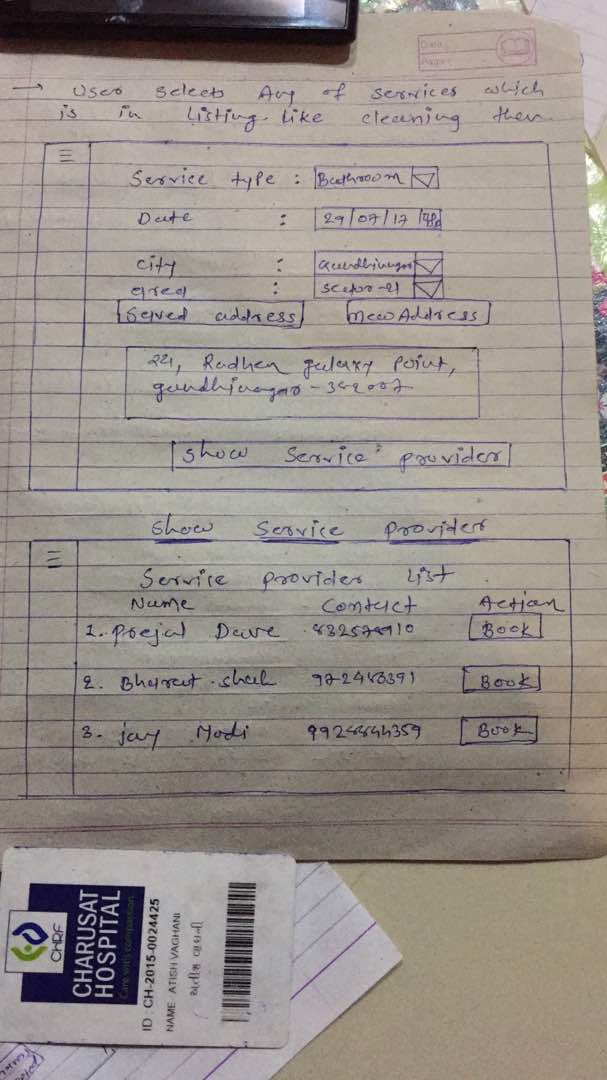 Date
→ User selects Any of services which
is in listing like cleaning then
Service type : Bathroom
Date : 29/07/17
city : Gandhinagar
area : sector-21
Saved address New Address
Radhen galaxy Point,
gandhinagar - 382007
show Service provider
Show Service Provider
Service provider List
Name Contact Action
1. Prejal Dave Book
2. Bharat shah Book
3. jay Modi Book
CHRF
CHARUSAT
HOSPITAL
Care with compassion
ID : CH-2015-0024425
NAME ATISH VAGHANI